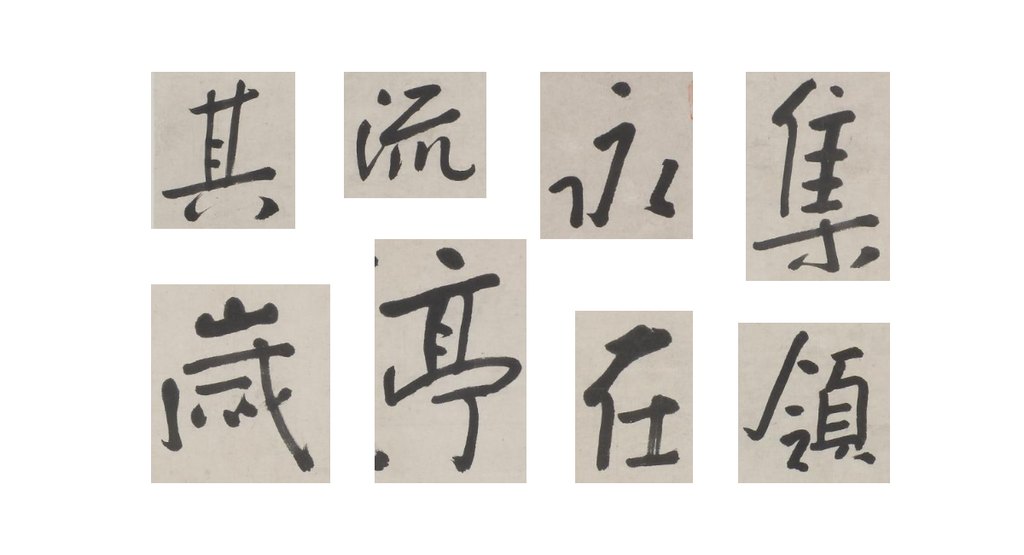 其 流 永 集
歲 亭 在 領